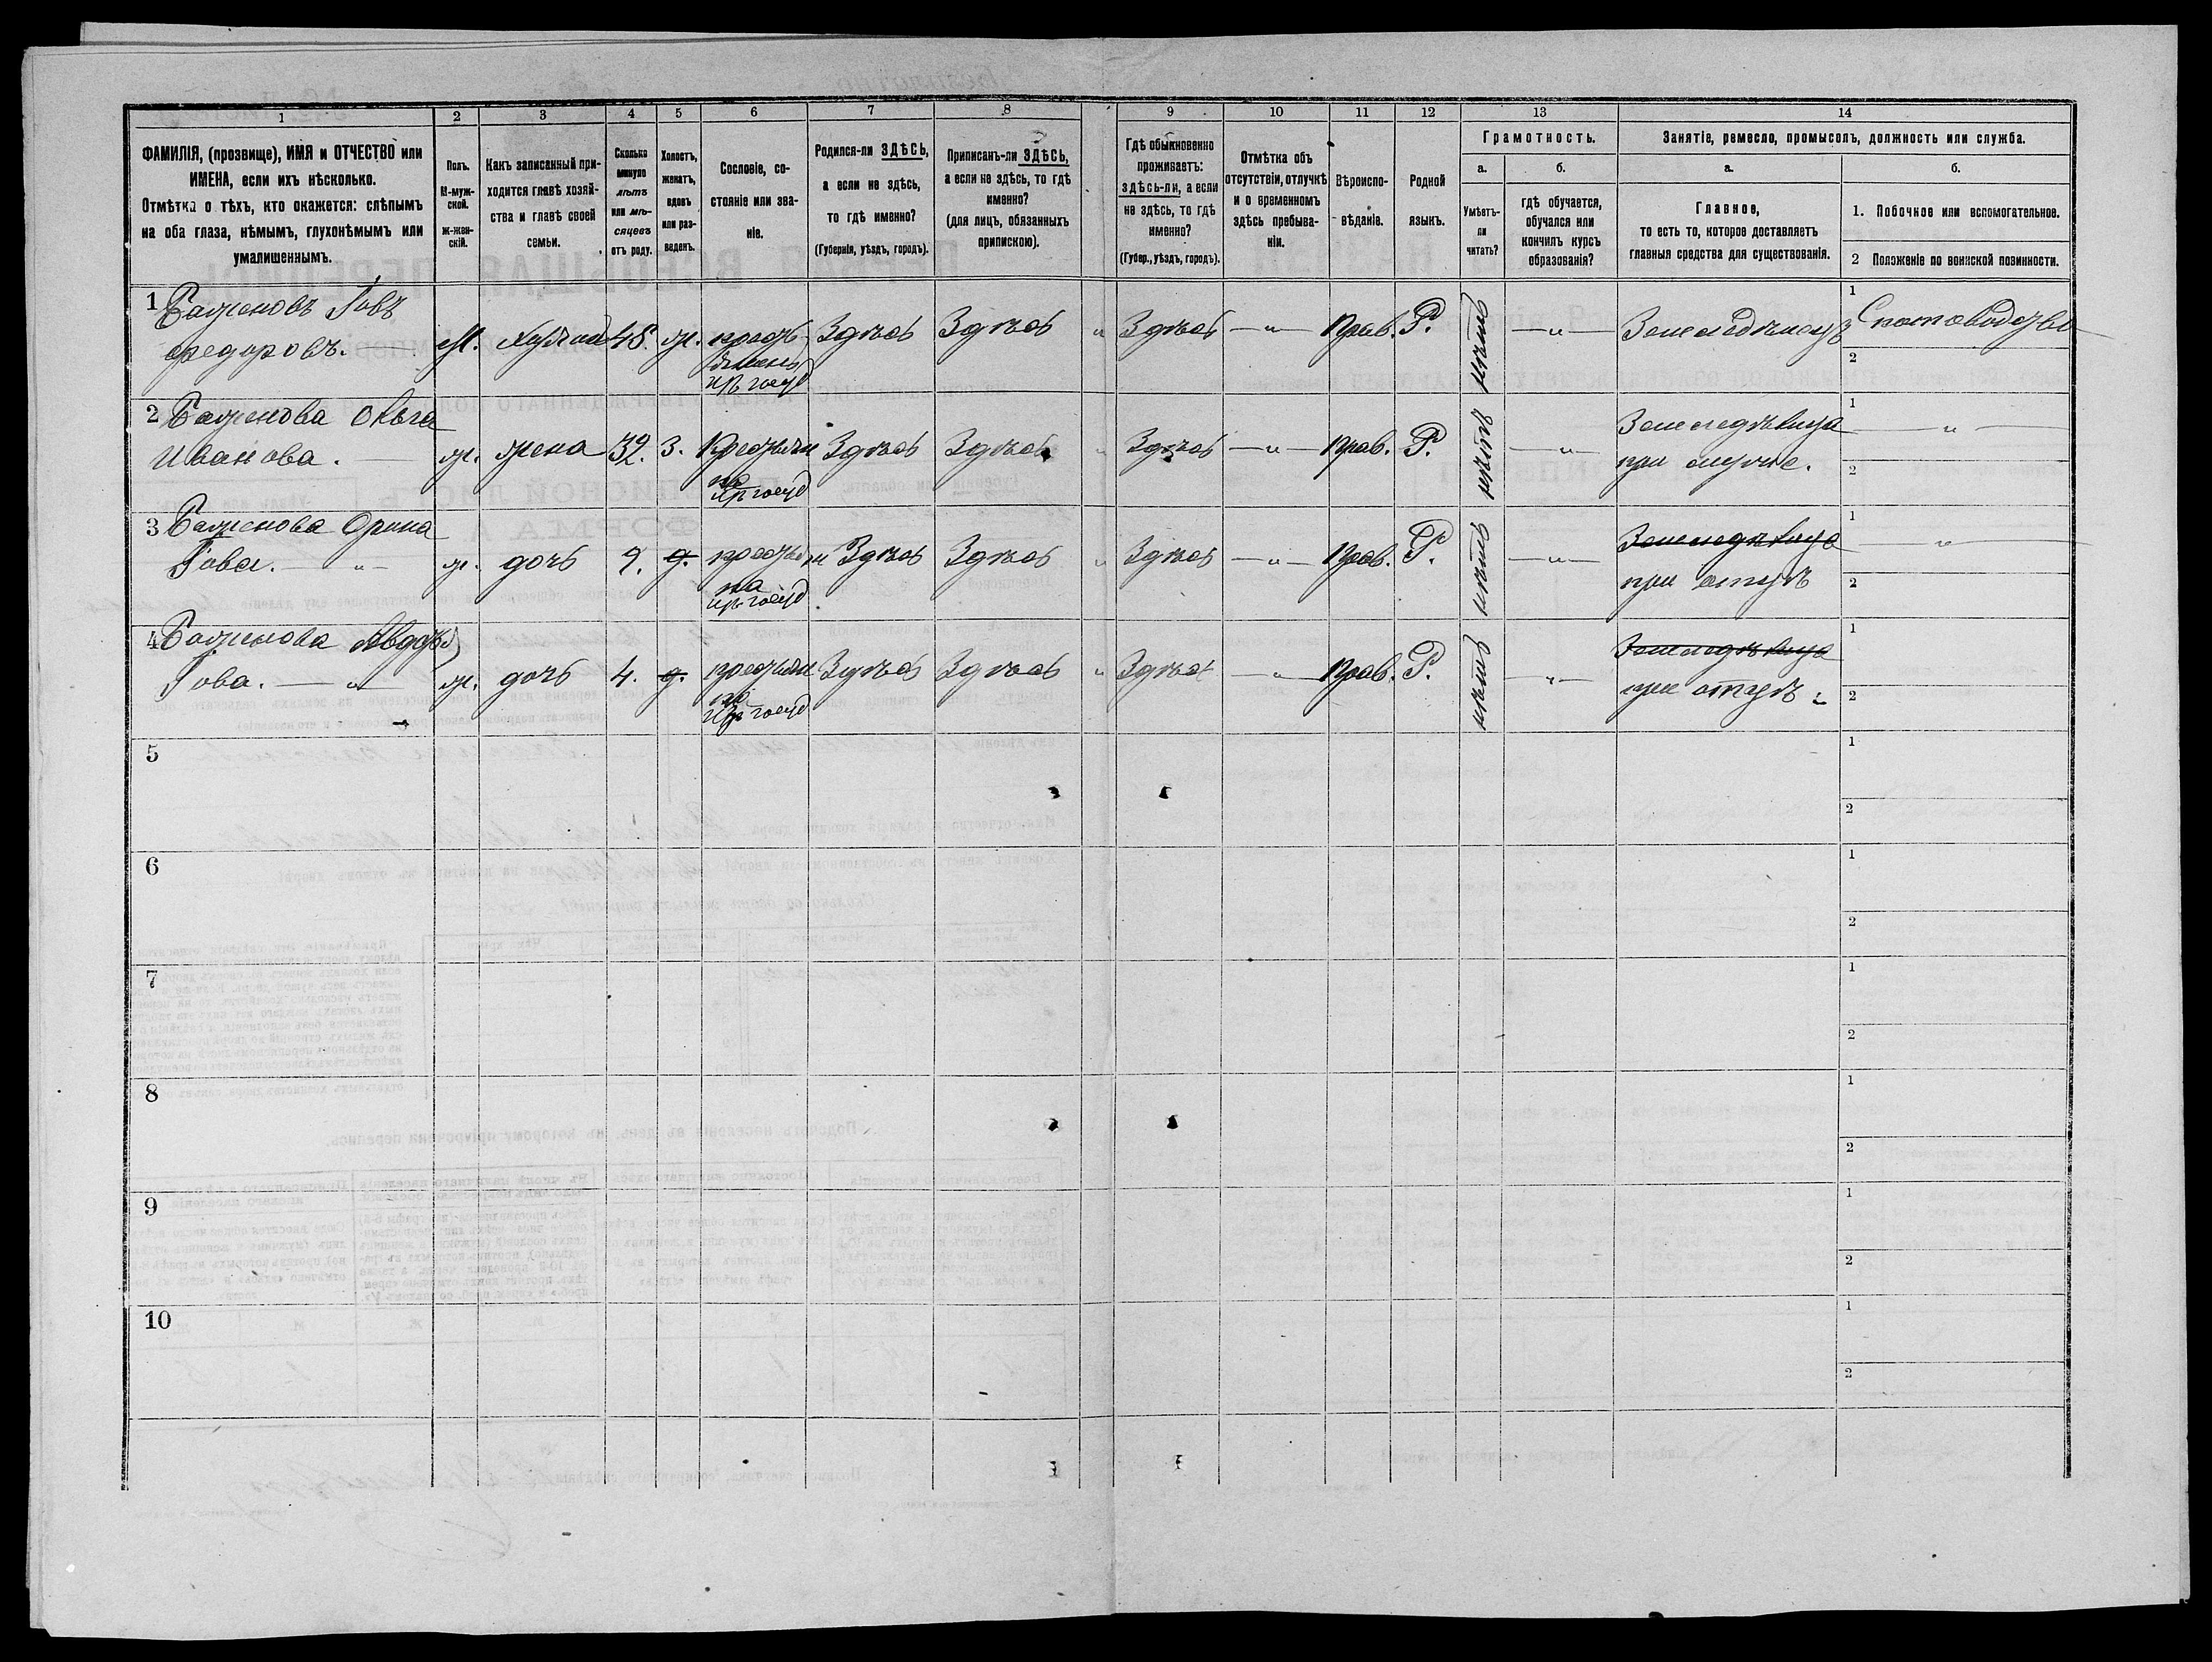 1 2 3 4 5 6 7 8 9 10 11 12 13 14
ФАМИЛІЯ, (прозвище), ИМЯ и ОТЧЕСТВО или
ИМЕНА, если ихъ нѣсколько.
Отмѣтка о тѣхъ, кто окажется: слѣпымъ
на оба глаза, нѣмымъ, глухонѣмымъ или
умалишеннымъ.
Полъ.
М-муж-
ской.
ж-жен-
скій.
Какъ записанный при-
ходится главѣ хозяй-
ства и главѣ своей
семьи.
Сколько
минуло
лѣтъ
или мѣ-
сяцевъ
отъ роду.
Холостъ,
женатъ,
вдовъ
или раз-
веденъ.
Сословіе, со-
стояніе или зва-
ніе.
Родился-ли ЗДѢСЬ,
а если не здѣсь,
то гдѣ именно?
(Губернія, уѣздъ, городъ).
Приписанъ-ли ЗДѢСЬ,
а если не здѣсь, то гдѣ
именно?
(для лицъ, обязанныхъ
припискою).
Гдѣ обыкновенно
проживаетъ:
здѣсь-ли, а если
не здѣсь, то гдѣ
именно?
(Губер., уѣздъ, городъ).
Отмѣтка объ
отсутствіи, отлучкѣ
и о временномъ
здѣсь пребыва-
ніи.
Вѣроиспо-
вѣданіе.
Родной
языкъ.
Грамотность.
а.
Умѣетъ-
ли
читать?
б.
гдѣ обучается,
обучался или
кончилъ курсъ
образованія?
Занятіе, ремесло, промыселъ, должность или служба.
а.
Главное,
то есть то, которое доставляетъ
главныя средства для существованія.
б.
1. Побочное или вспомогательное.
2 Положеніе по воинской повинности.
1 Баженовъ Іовъ
Федоровъ.
м. 48. ж. Здѣсь Здѣсь Здѣсь — " — Прав. Р. нѣтъ — " — Земледѣлецъ
1 Скотоводство
2
2 Баженова Ольга
Иванова.
ж. жена 32. З. Крестьян
ка
Здѣсь Здѣсь Здѣсь — " — Прав. Р. нѣтъ — " —
Земледѣлица
при мужѣ.
1 — " —
2
3 Баженова Орина
Іова. — " —
ж. дочь 9. д. крестьян
ка
Здѣсь Здѣсь Здѣсь — " — Прав. Р. нѣтъ — " —
Земледѣлица
при отцѣ
1 — " —
2
4 Баженова Авдотья
Іова. — " —
ж. дочь 4. д. крестьян
ка
Здѣсь Здѣсь Здѣсь — " — Прав. Р. нѣтъ — " —
Земледѣлица
при отцѣ
1
2
5
1
2
6
1
2
7
1
2
8
1
2
9
1
2
10
1
2